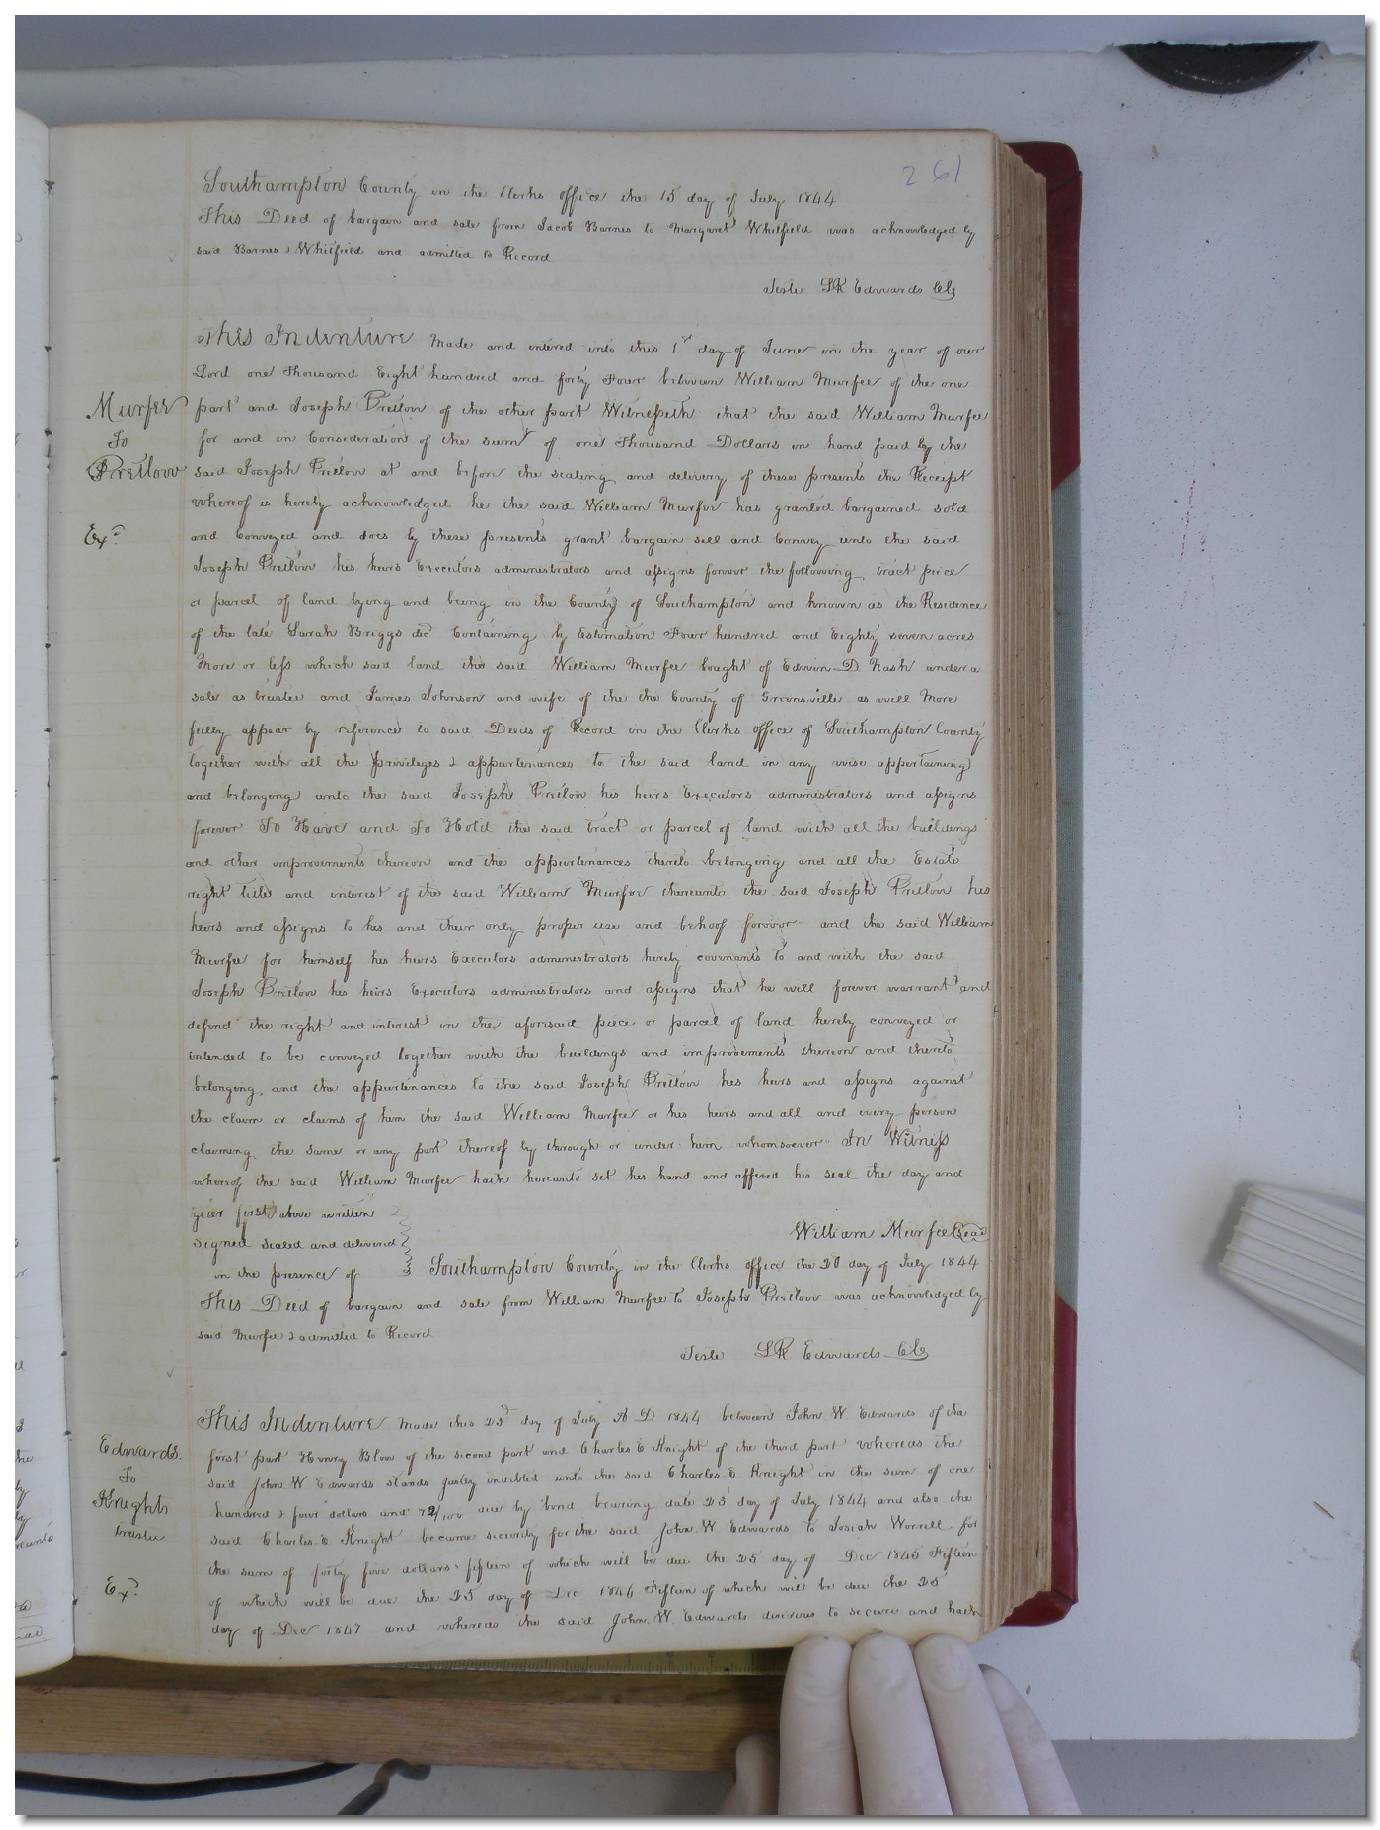 261
Southampton County in the Clerks office the 15 day of July 1844
This Deed of bargain and sale from Jacob Barnes to Margaret Whitfield was acknowledged by
said Barnes & Whitfield and admitted to Record
Teste LR Edwards CC
This Indenture Made and entered into this 1st day of June in the year of our
Lord one Thousand Eight hundred and forty Four between William Murfee of the one
Murfee
To
Pretlow
Ex.d
part and Joseph Pretlow of the other part Witnesseth that the said William Murfee
for and in Consideration of the sum of one Thousand Dollars in hand paid by the
said Joseph Pretlow at and before the sealing and delivery of these presents the Receipt
whereof is hereby acknowledged he the said William Murfee has granted bargained sold
and Conveyed and does by these presents grant bargain sell and Convey unto the said
Joseph Pretlow his heirs Executors administrators and assigns forever the following tract piece
or parcel of land lying and being in the County of Southampton and known as the Residence
of the late Sarah Briggs decd Containing by Estimation Four hundred and Eighty seven acres
More or less which said land the said William Murfee bought of Edwin D. Nash under a
sale as trustee and James Johnson and wife of the the County of Greensville as will More
fully appear by reference to said Deeds of Record in the Clerks office of Southampton County
together with all the privileges & appurtenances to the said land in any wise appertaining
and belonging unto the said Joseph Pretlow his heirs Executors administrators and assigns
forever To Have and To Hold the said tract or parcel of land with all the buildings
and other improvements thereon and the appurtenances thereto belonging and all the Estate
right title and interest of the said William Murfee thereunto the said Joseph Pretlow his
heirs and assigns to his and their only proper use and behoof forever and the said William
Murfee for himself his heirs Executors administrators hereby covenants to and with the said
Joseph Pretlow his heirs Executors administrators and assigns that he will forever warrant and
defend the right and interest in the aforesaid piece or parcel of land hereby conveyed or
intended to be conveyed together with the buildings and improvements thereon and thereto
belonging, and the appurtenances to the said Joseph Pretlow his heirs and assigns against
the claim or claims of him the said William Murfee or his heirs and all and every person
claiming the same or any part thereof by through or under him whomsoever In Witness
whereof the said William Murfee hath hereunto set his hand and affixed his seal the day and
year first above written
William Murfee Seal
Signed Sealed and delivered
in the presence of
Southampton County in the Clerks office the 20 day of July 1844
This Deed of bargain and sale from William Murfee to Joseph Pretlow was acknowledged by
said Murfee & admitted to Record
Teste LR Edwards CC
Edwards
To
Knights
trustee
Ex.d
This Indenture Made this 23d day of July A D 1844 between John W Edwards of the
first part Henry Blow of the second part and Charles E Knight of the third part whereas the
said John W Edwards stands justly indebted unto the said Charles E Knight in the sum of one
hundred & four dollars and 72/100 due by bond bearing date 23 day of July 1844 and also the
said Charles E Knight became security for the said John W Edwards to Josiah Worrell for
the sum of forty five dollars fifteen of which will be due the 25 day of Dec 1845 Fifteen
of which will be due the 25 day of Dec 1846 Fifteen of which will be due the 25
day of Dec 1847 and whereas the said John W. Edwards desirous to secure and hath